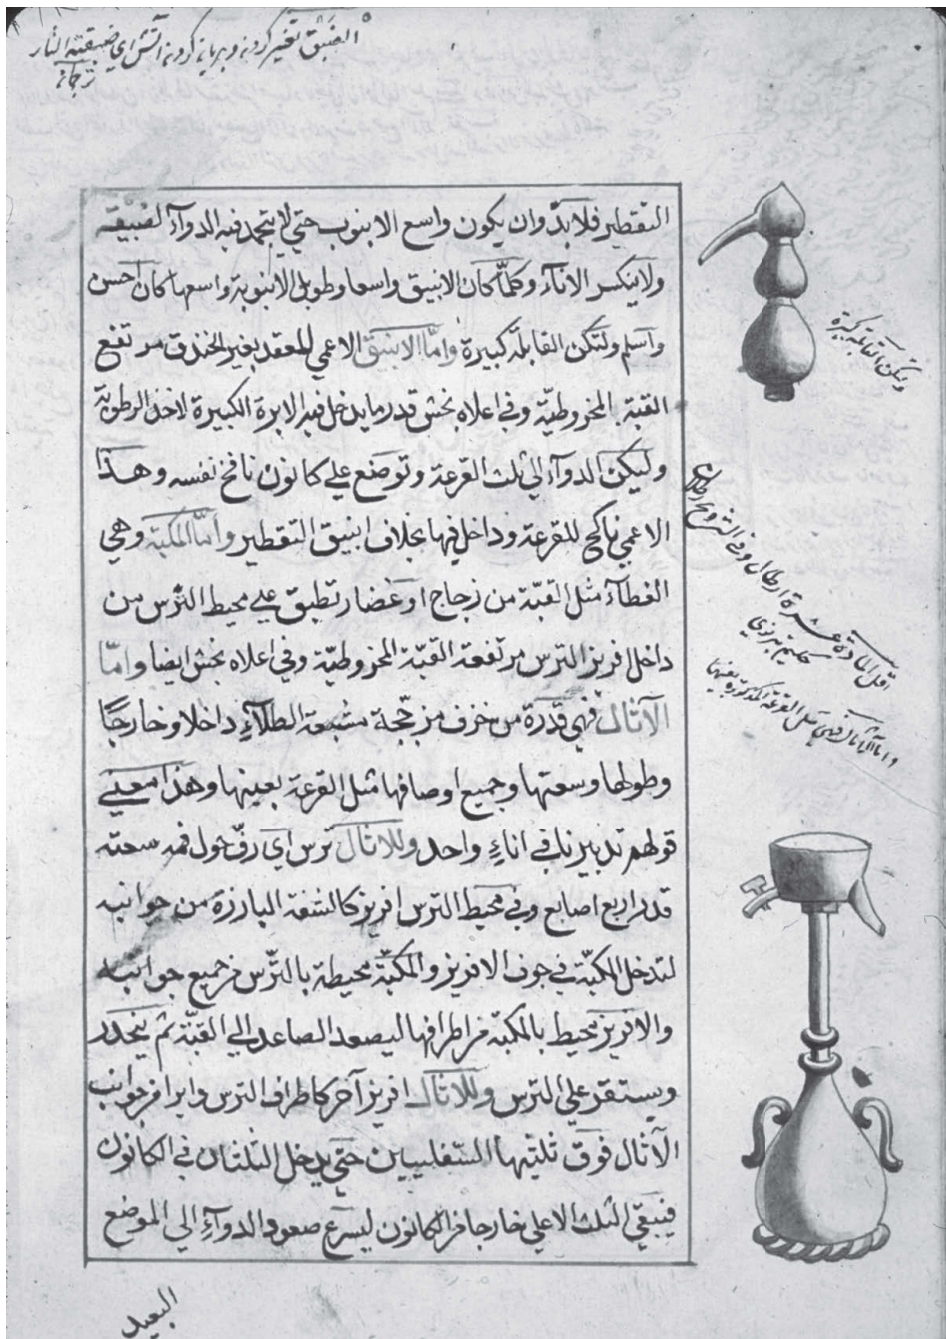 التقطير فلا بدّ وان يكون واسع الانبوب حتي لا يتجمد فيه الدوآء لضيقه
ولا ينكسر الاناء وكلمّا كان الانبيق واسعا وطويل الانبوبة واسعها كان احسن
واسلم ولتكن القابلة كبيرة وامّا الانبيق الاعمي للمعقد بغير الخندق مرتفع
القبّة بالمخروطيّة وفي اعلاه بخش قدر ما يدخل فيه الابرة الكبيرة لاجل الرطوبة
وليكن الدوآء الي ثلث القرعة وتوضع علي كانون نافخ نفسه وهذا
الاعمي ناكح للقرعة وداخل فيها بخلاف انبيق التقطير وامّا المكبّة وهي
الغطآء مثل القبّة من زجاج او غضار تطبق علي محيط الترس من
داخل افريز الترس مرتفعة القبّة المخروطيّة وفي اعلاه بخش ايضا وامّا
الآثال فهي قدرة من خزف مزجّجة مشبعة الطلآء داخلا وخارجًا
وطولها وسعتها وجميع اوصافها مثل القرعة بعينها وهذا معني
قولهم تدبيرنا في اناءٍ واحد وللآثال ترس اي رفّ حول فمه سعته
قدر اربع اصابع وفي محيط الترس افريز كالشفة البارزة من جوانبه
لتدخل المكبّة في جوف الافريز والمكبّة محيطة بالترس من جميع جوانبه
والافريز محيط بالمكبّة من اطرافها ليصعد الصاعد الي القبّة ثم ينحدر
ويستقر علي الترس وللآثال افريز آخر كاطراف الترس دايرا في جوانب
الآثال فوق ثلثيها السفليين حتي يدخل الثلثان في الكانون
فيبقي الثلث الاعلي خارجا من الكانون ليسرع صعود الدوآء الي الموضع
البعيد
ولتكن القابلة كبيرة
وامّا الآثال فهي مثل القرعة المذكورة بعينها